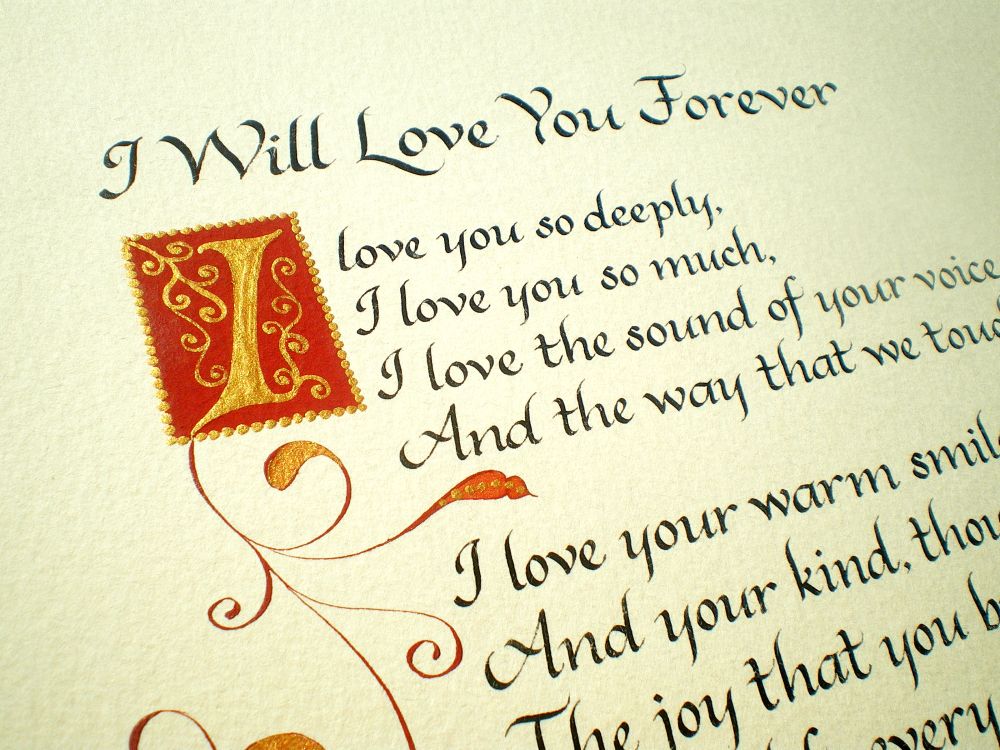 I Will Love You Forever
I love you so deeply,
I love you so much,
I love the sound of your voice
And the way that we
I love your warm
And your kind,
The joy that you
every